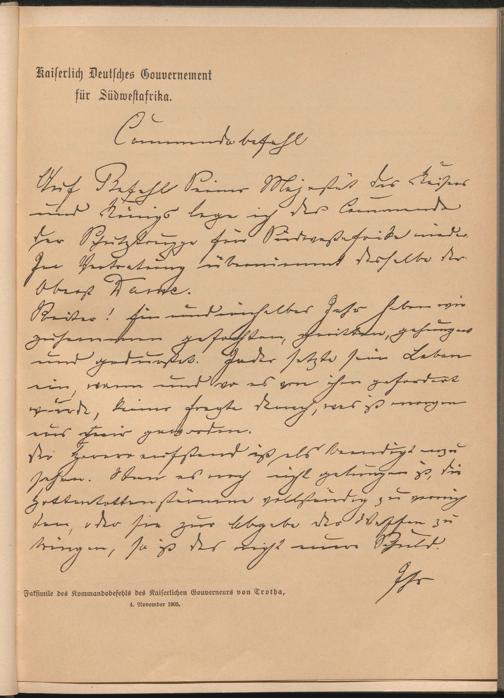 Kaiserlich Deutsches Gouvernement
für Südwestafrika.
Commandobefehl
Auf Befehl Seiner Majestät des Kaisers
und Königs lege ich das Commando
der Schutztruppe für Südwestafrika nieder.
In Vertretung übernimmt dasselbe der
Oberst Dame.
Reiter! Ein und einhalbes Jahr haben wir
zusammen gefochten, geritten, gehungert
und gedurstet. Jeder setzte sein Leben
ein, wann und wo es von ihm gefordert
wurde, keiner fragte danach, was ist morgen
aus geworden.
Der Hereroaufstand ist als beendigt anzu
sehen. Wenn es noch nicht gelungen ist, die
Hottentottenstämme vollständig zu vernich
ten, oder sie zur Abgabe der Waffen zu
zwingen, so ist das nicht eure Schuld.
Ihr
Faksimile des Kommandobefehls des Kaiserlichen Gouverneurs von Trotha,
4. November 1905.